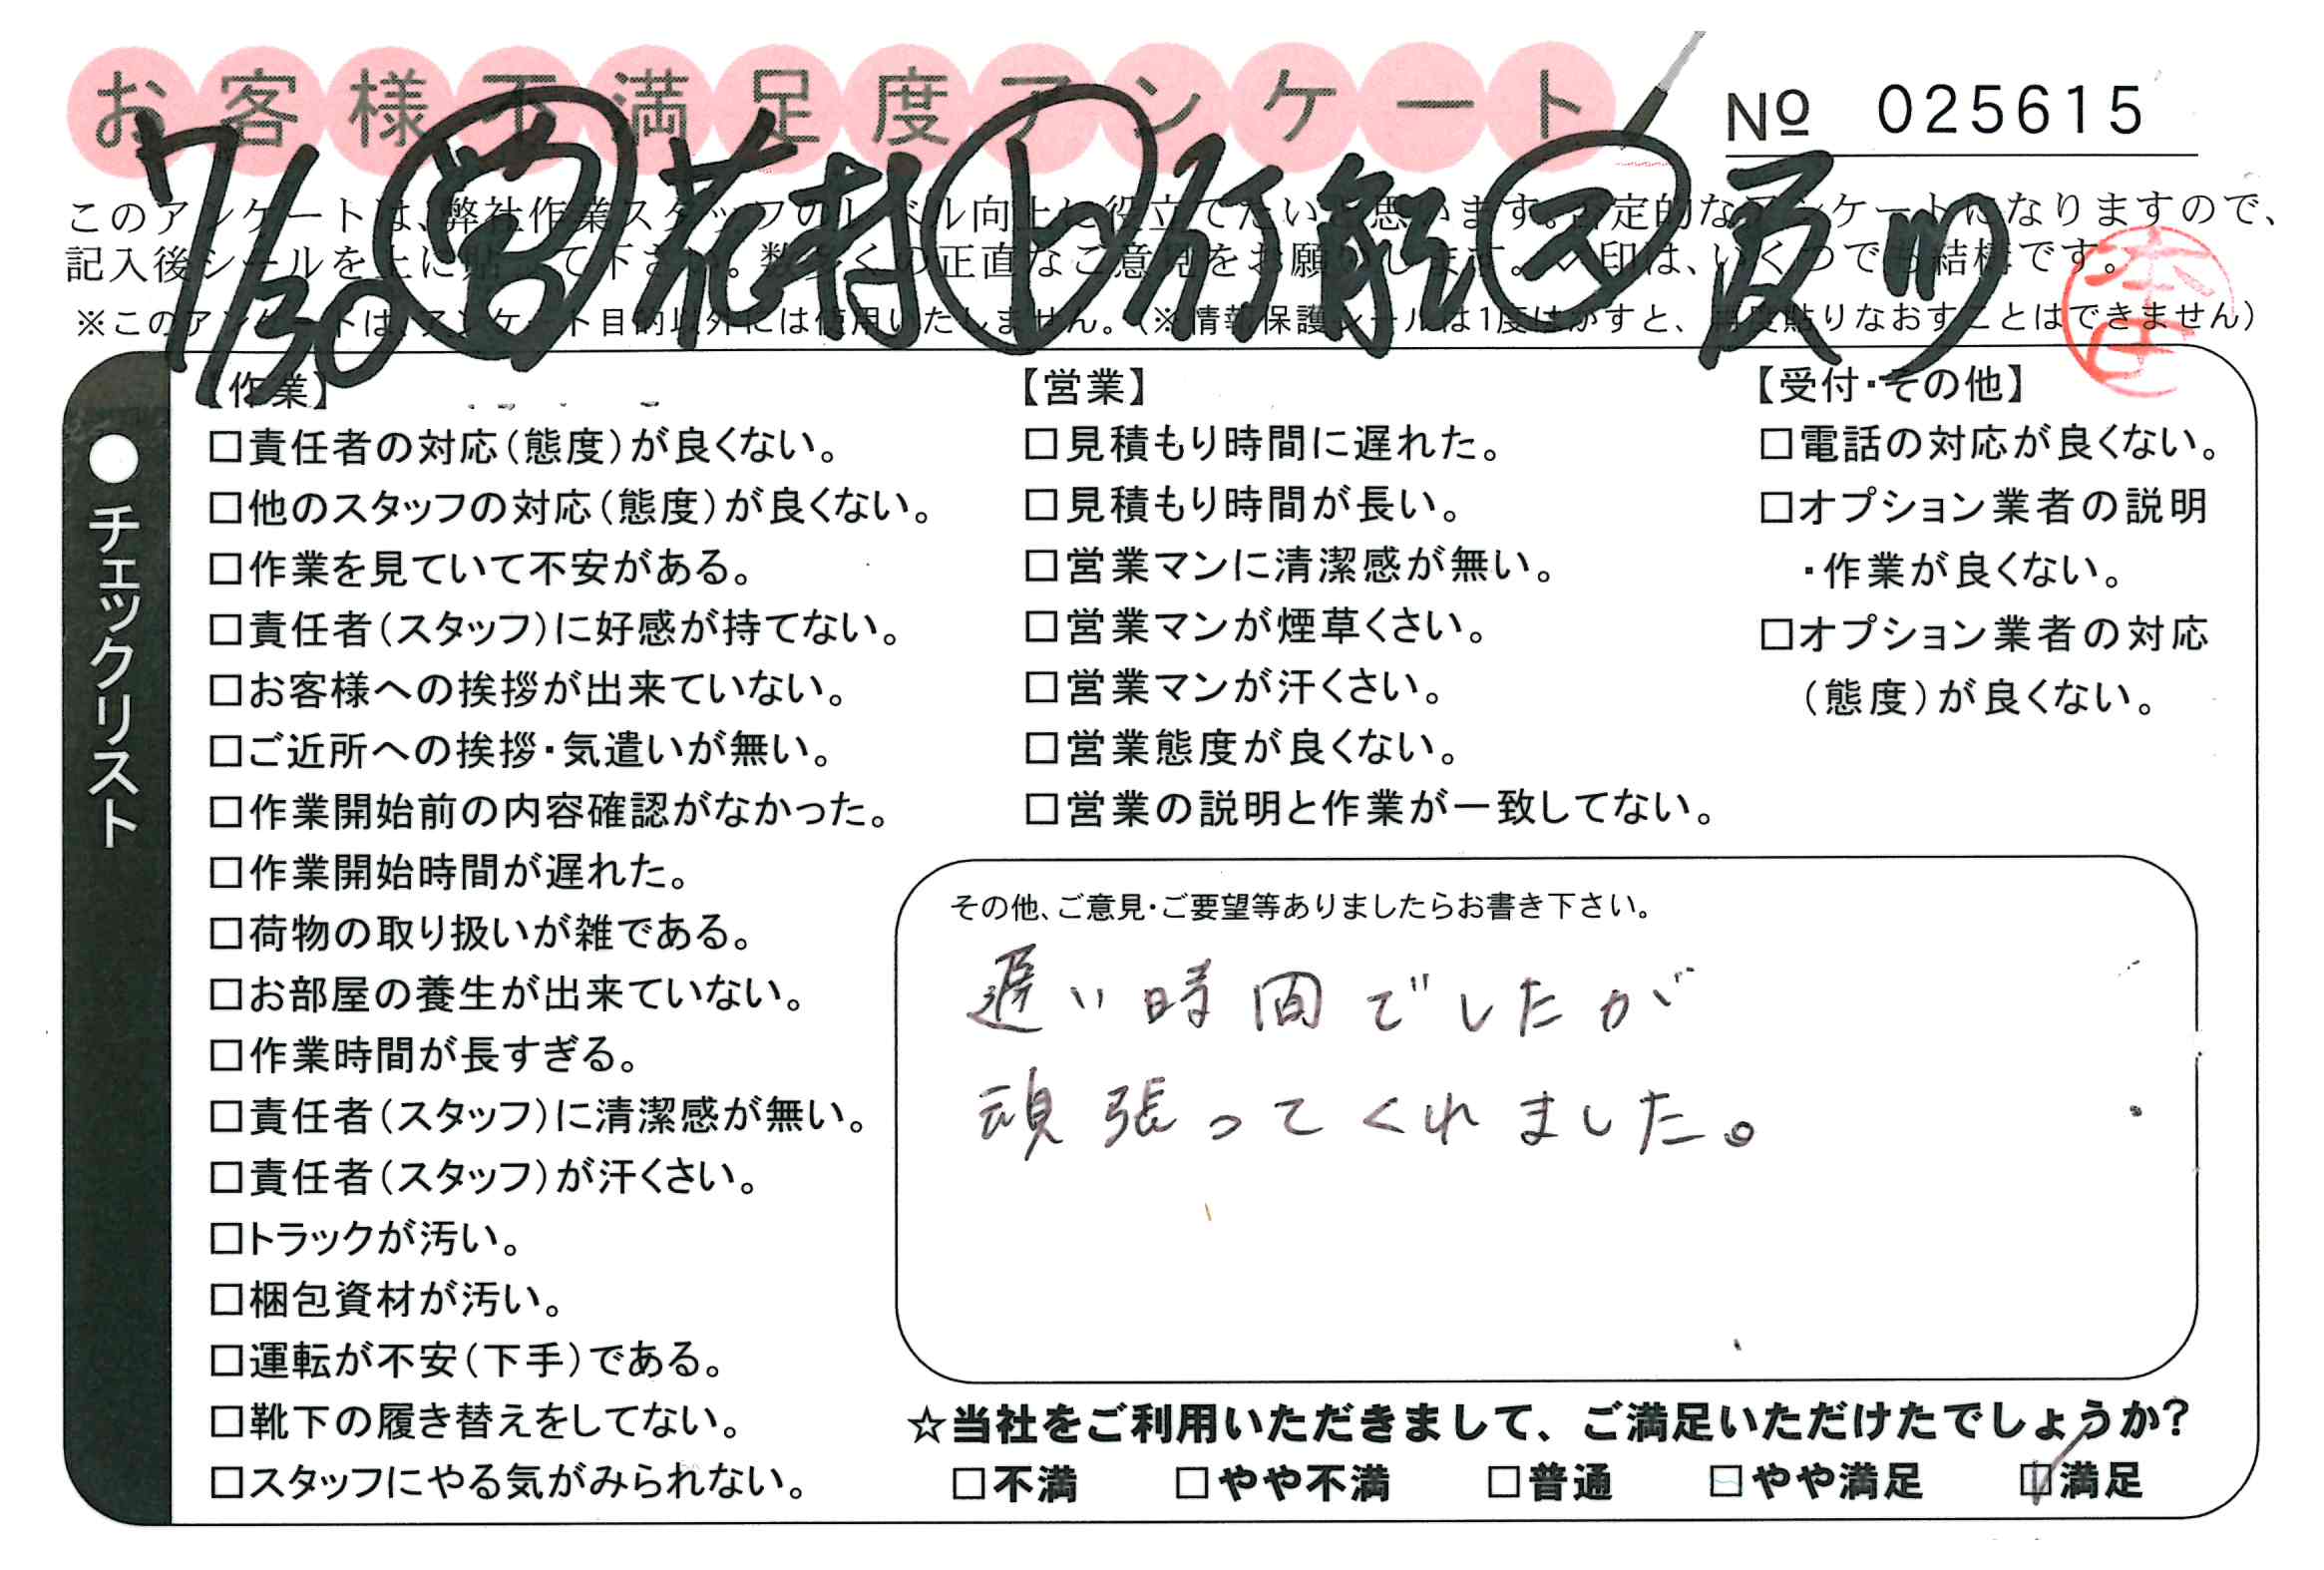 お客様不満足度アンケート
№ 025615
7/30 営 花村
このアンケートは、弊社作業スタッフのレベル向上に役立てたいと思います。否定的なアンケートになりますので、
記入後シールを上に貼って下さい。数多くの正直なご意見をお願いします。✓印は、いくつでも結構です。
※このアンケートは、アンケート目的以外には使用いたしません。（※情報保護シールは1度はがすと、再度貼りなおすことはできません）
●チェックリスト
【作業】
□責任者の対応（態度）が良くない。
□他のスタッフの対応（態度）が良くない。
□作業を見ていて不安がある。
□責任者（スタッフ）に好感が持てない。
□お客様への挨拶が出来ていない。
□ご近所への挨拶・気遣いが無い。
□作業開始前の内容確認がなかった。
□作業開始時間が遅れた。
□荷物の取り扱いが雑である。
□お部屋の養生が出来ていない。
□作業時間が長すぎる。
□責任者（スタッフ）に清潔感が無い。
□責任者（スタッフ）が汗くさい。
□トラックが汚い。
□梱包資材が汚い。
□運転が不安（下手）である。
□靴下の履き替えをしてない。
□スタッフにやる気がみられない。
【営業】
□見積もり時間に遅れた。
□見積もり時間が長い。
□営業マンに清潔感が無い。
□営業マンが煙草くさい。
□営業マンが汗くさい。
□営業態度が良くない。
□営業の説明と作業が一致してない。
【受付・その他】
□電話の対応が良くない。
□オプション業者の説明
・作業が良くない。
□オプション業者の対応
（態度）が良くない。
その他、ご意見・ご要望等ありましたらお書き下さい。
遅い時間でしたが
頑張ってくれました。
☆当社をご利用いただきまして、ご満足いただけたでしょうか?
□不満 □やや不満 □普通 □やや満足 ☑満足